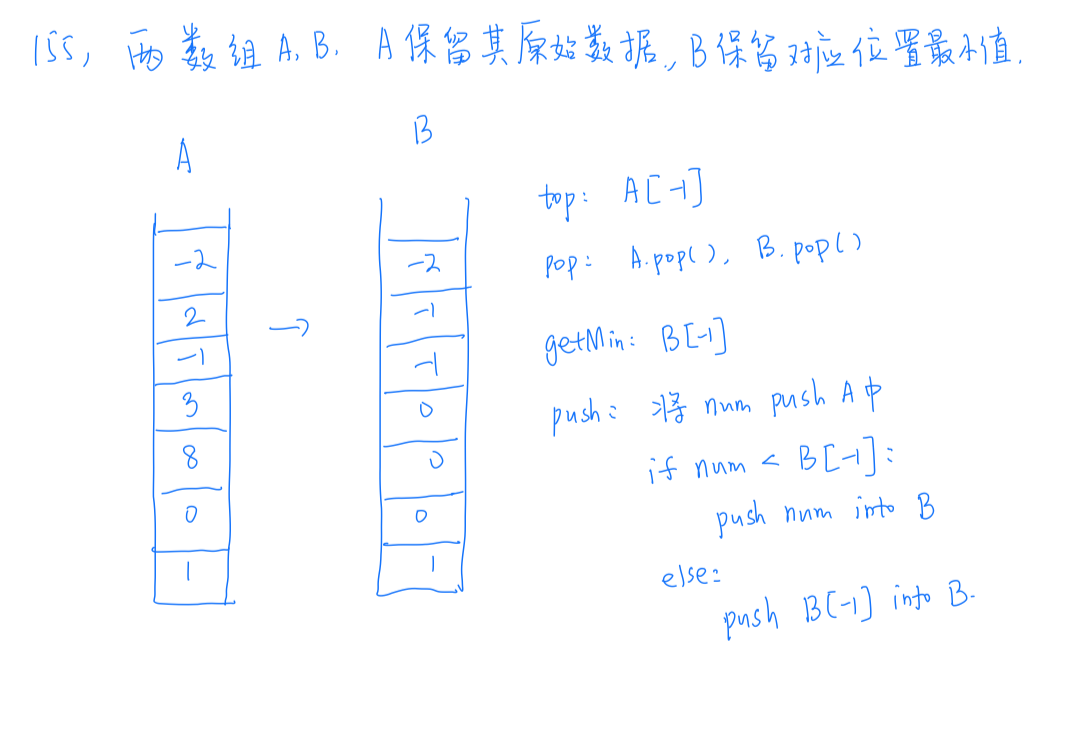 155, 两数组 A, B. A保留其原始数据, B保留对应位置最小值.
A
B
-2
2
-1
3
8
0
1
→
-2
-1
-1
0
0
0
1
top: A[-1]
pop: A.pop(), B.pop()
getMin: B[-1]
push: 将 num push A中
if num < B[-1]:
push num into B
else:
push B[-1] into B.